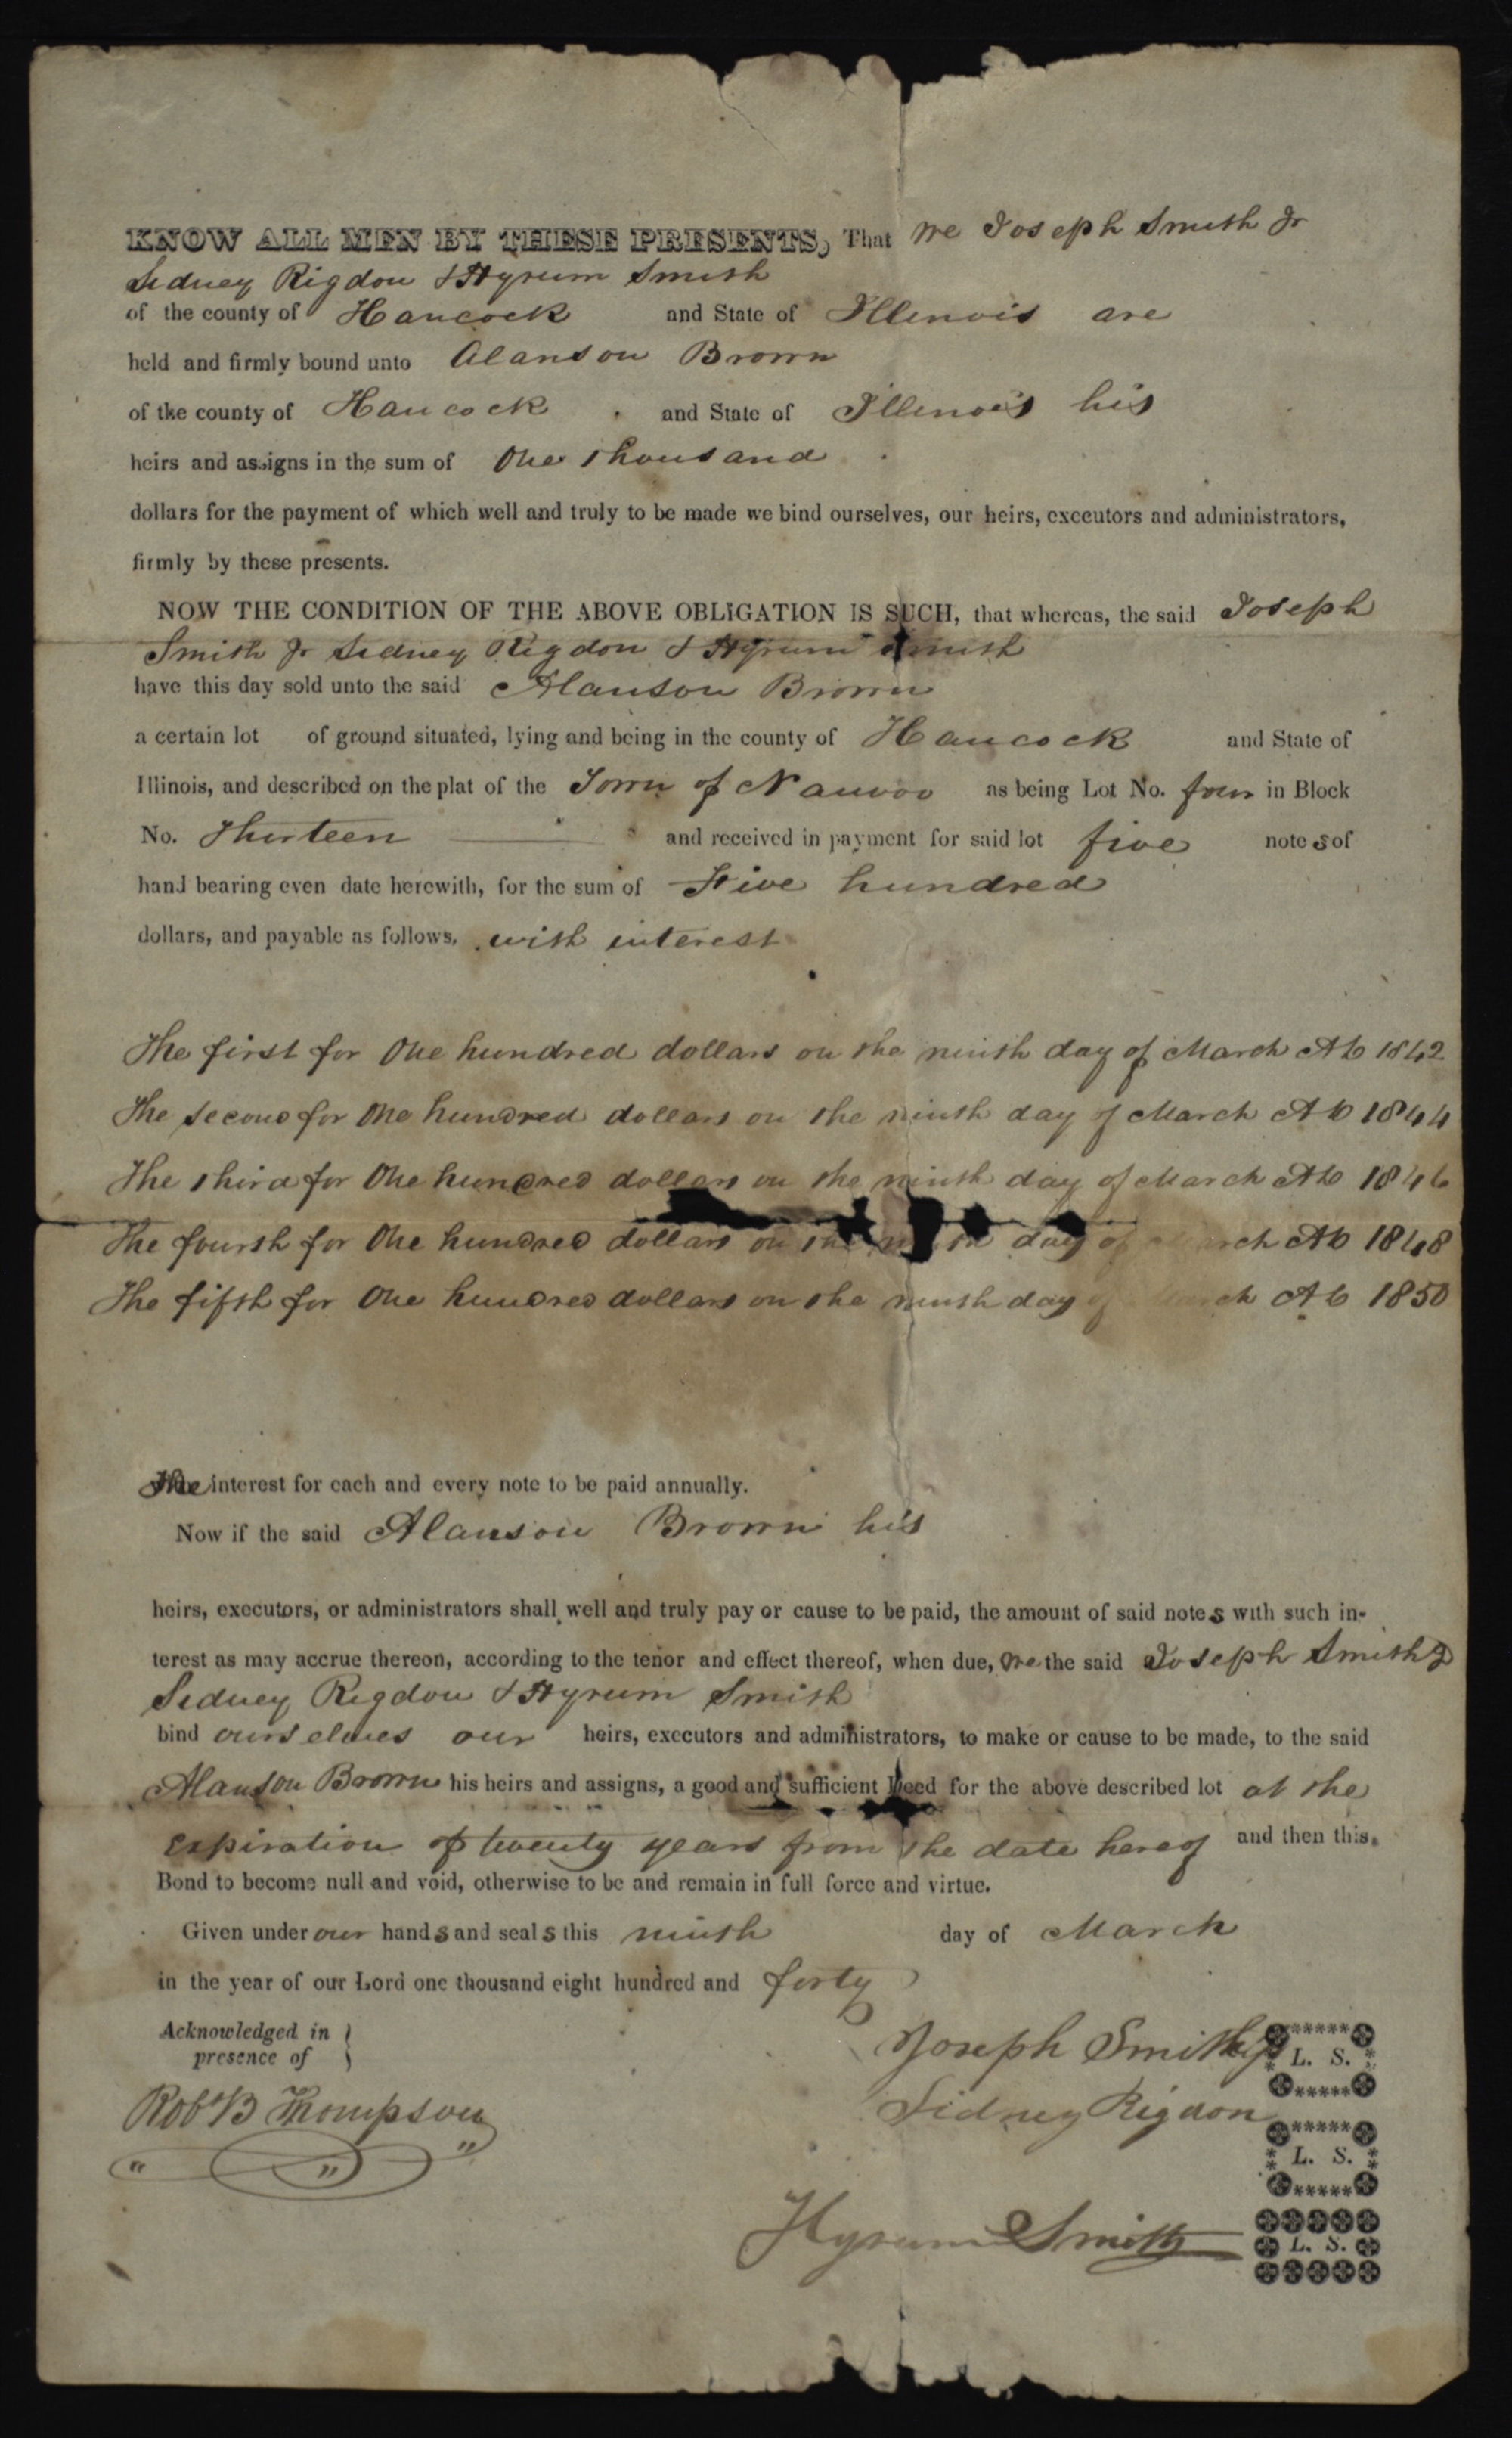 KNOW ALL MEN BY THESE PRESENTS, That we Joseph Smith Jr
Sidney Rigdon & Hyrum Smith
of the county of Hancock and State of Illinois are
held and firmly bound unto Alanson Brown
of the county of Hancock and State of Illinois his
heirs and assigns in the sum of One thousand
dollars for the payment of which well and truly to be made we bind ourselves, our heirs, executors and administrators,
firmly by these presents.
NOW THE CONDITION OF THE ABOVE OBLIGATION IS SUCH, that whereas, the said Joseph
Smith Jr Sidney Rigdon & Hyrum Smith
have this day sold unto the said Alanson Brown
a certain lot of ground situated, lying and being in the county of Hancock and State of
Illinois, and described on the plat of the Town of Nauvoo as being Lot No. four in Block
No. Thirteen and received in payment for said lot five notes of
hand bearing even date herewith, for the sum of Five hundred
dollars, and payable as follows. with interest
The first for One hundred dollars on the ninth day of March AD 1842
The second for One hundred dollars on the ninth day of March AD 1844
The third for One hundred dollars on the ninth day of March AD 1846
The fourth for One hundred dollars on the ninth day of March AD 1848
The fifth for One hundred dollars on the ninth day of March AD 1850
The interest for each and every note to be paid annually.
Now if the said Alanson Brown his
heirs, executors, or administrators shall well and truly pay or cause to be paid, the amount of said notes with such in-
terest as may accrue thereon, according to the tenor and effect thereof, when due, we the said Joseph Smith Jr
Sidney Rigdon & Hyrum Smith
bind ourselves our heirs, executors and administrators, to make or cause to be made, to the said
Alanson Brown his heirs and assigns, a good and sufficient Deed for the above described lot at the
expiration of twenty years from the date hereof and then this
Bond to become null and void, otherwise to be and remain in full force and virtue.
Given under our hands and seals this ninth day of March
in the year of our Lord one thousand eight hundred and forty
Acknowledged in
presence of
Joseph Smith Jr L. S.
Robt B Thompson
Sidney Rigdon L. S.
Hyrum Smith L. S.